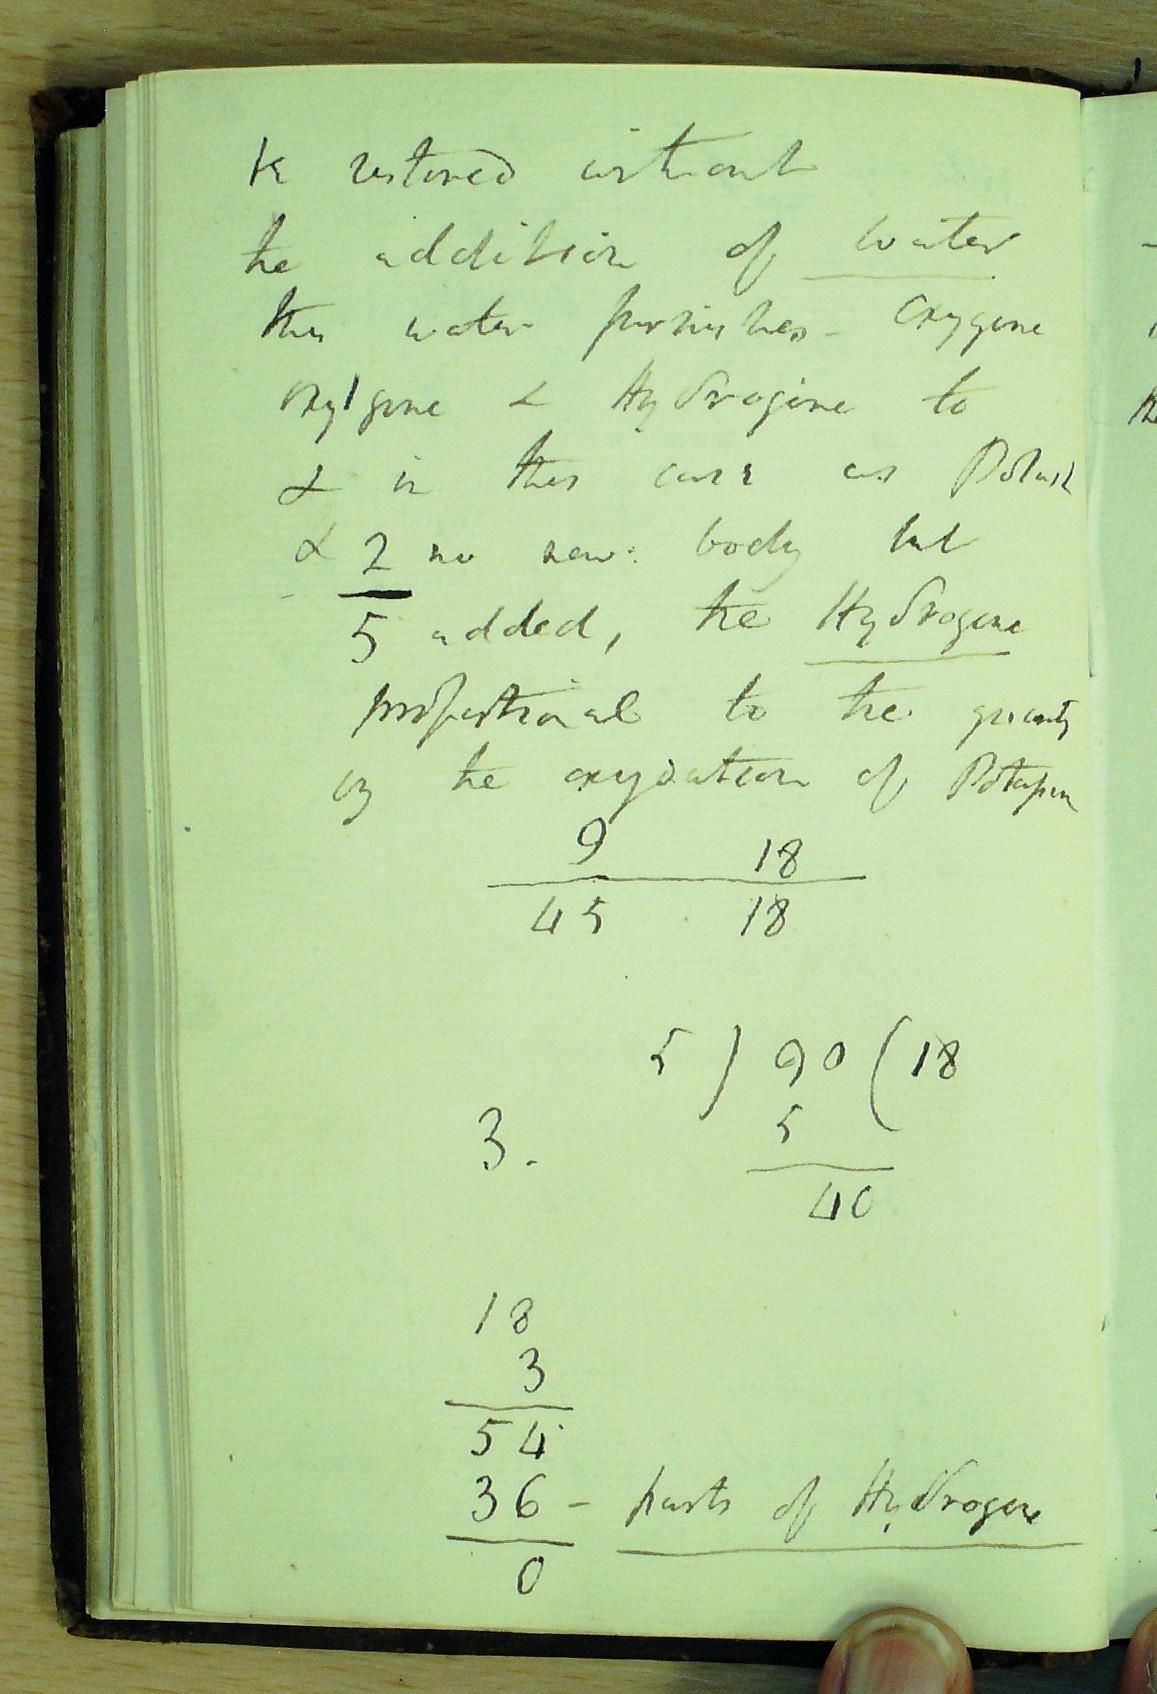 be restored without
the addition of water
this water furnishes - Oxygene
oxygene & Hydrogene to
& in this case as Potash
& 2 no new body but
5 added, the Hydrogene
proportional to the quantity
by the oxydation of Potassium
9 18
45 18
5 ) 90 ( 18
5
3.
40
18
3
54
36 - parts of Hydrogene
0